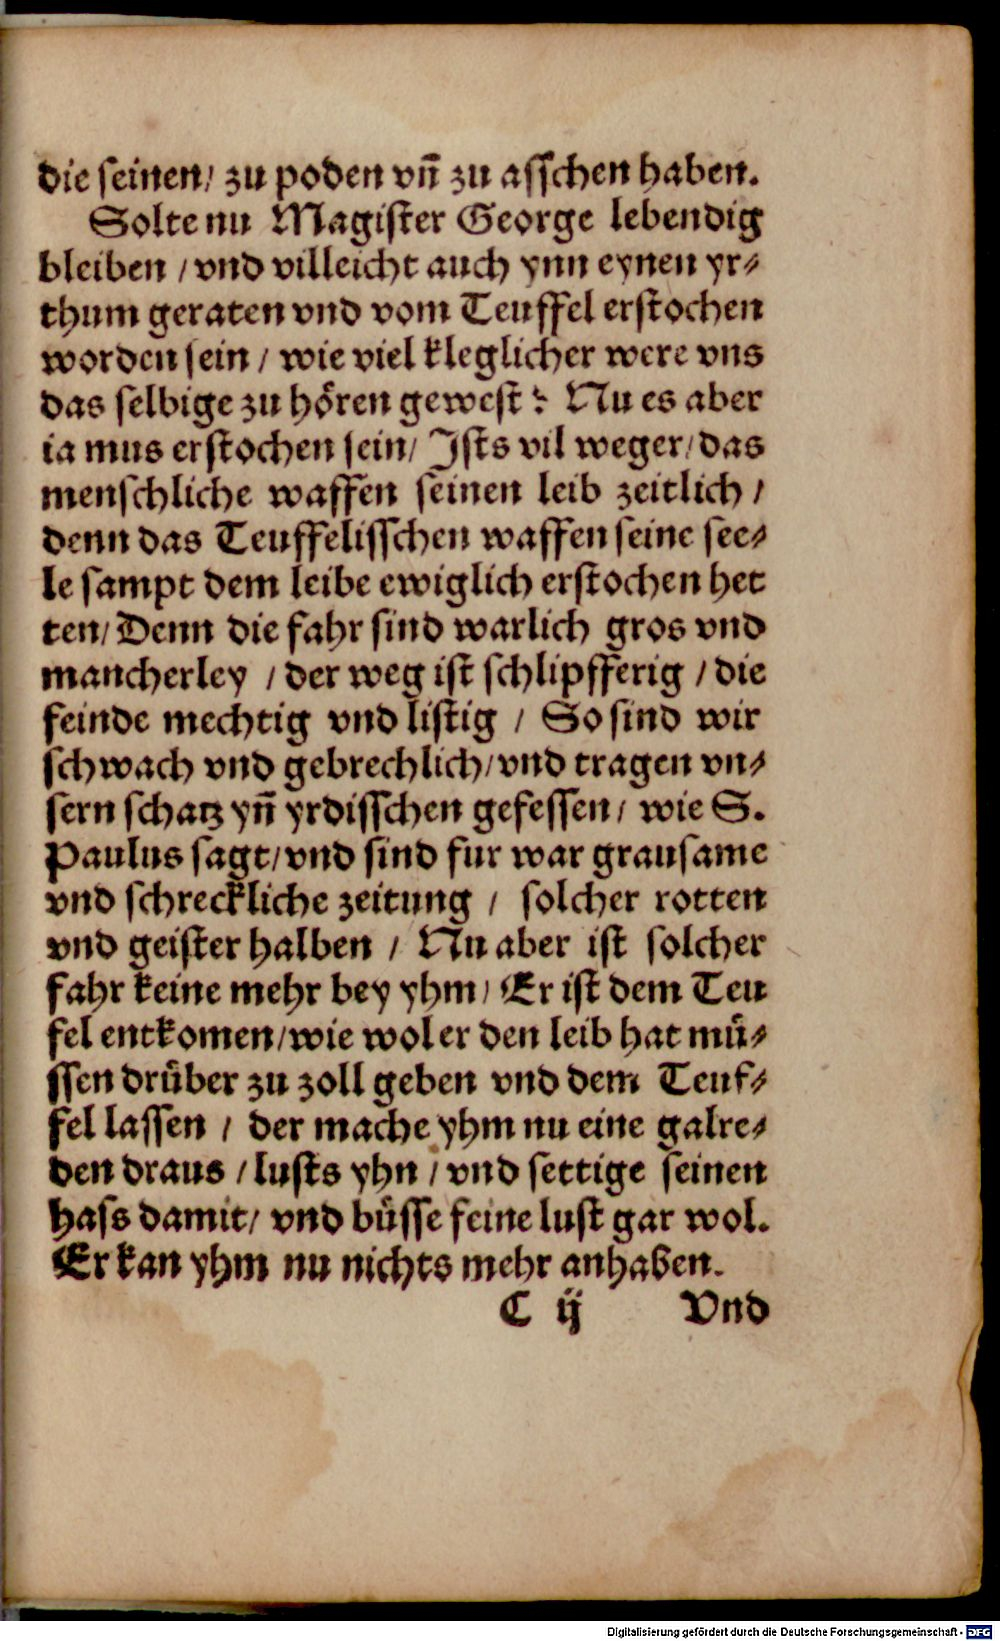 die seinen/ zu poden vn̄ zu asschen haben.
Solte nu Magister George lebendig
bleiben / vnd villeicht auch ynn eynen yr⸗
thum geraten vnd vom Teuffel erstochen
worden sein / wie viel kleglicher were vns
das selbige zu hoͤren gewest? Nu es aber
ia mus erstochen sein/ Ists vil weger/ das
menschliche waffen seinen leib zeitlich /
denn das Teuffelisschen waffen seine see⸗
le sampt dem leibe ewiglich erstochen het
ten/ Denn die fahr sind warlich gros vnd
mancherley / der weg ist schlipfferig / die
feinde mechtig vnd listig / So sind wir
schwach vnd gebrechlich/ vnd tragen vn⸗
sern schatz yn̄ yrdisschen gefessen/ wie S.
Paulus sagt/ vnd sind fur war grausame
vnd schreckliche zeitung / solcher rotten
vnd geister halben / Nu aber ist solcher
fahr keine mehr bey yhm/ Er ist dem Teu
fel entkomen/ wie wol er den leib hat muͤ⸗
ssen druͤber zu zoll geben vnd dem Teuf⸗
fel lassen / der mache yhm nu eine galre⸗
den draus / lusts yhn / vnd settige seinen
hass damit/ vnd buͤsse seine lust gar wol.
Er kan yhm nu nichts mehr anhaben.
C ij Vnd
Digitalisierung gefördert durch die Deutsche Forschungsgemeinschaft - DFG